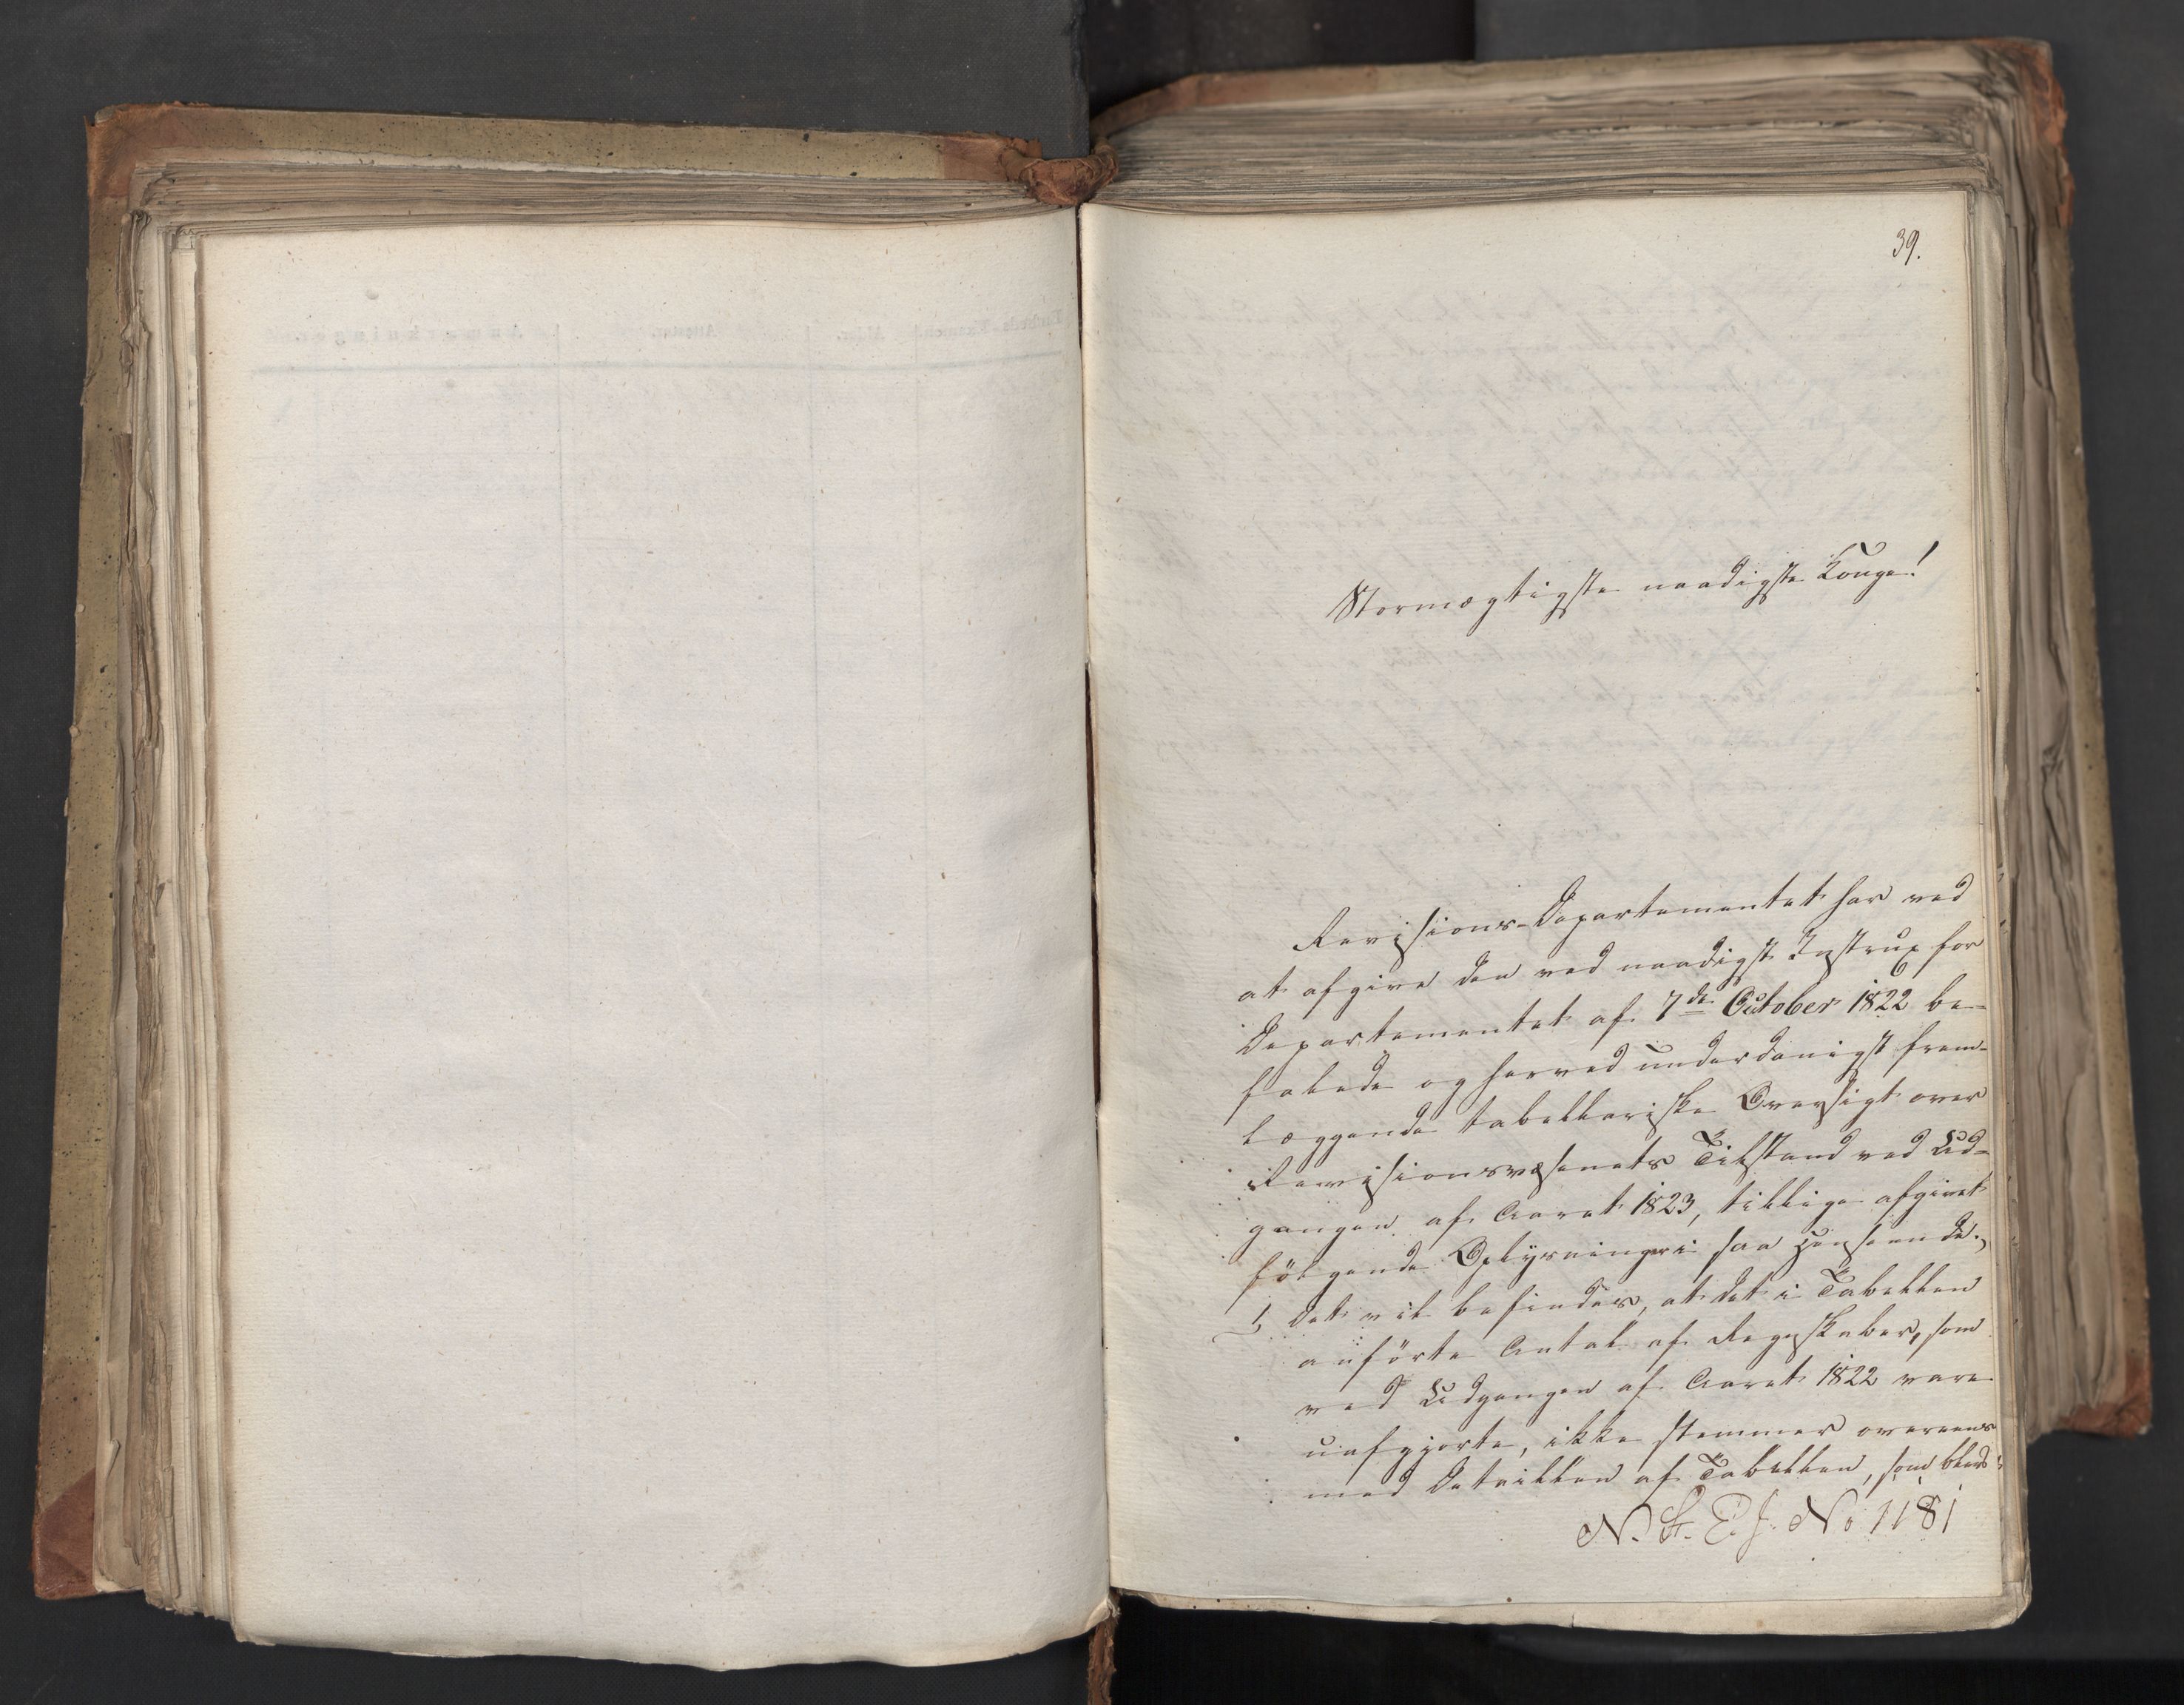 39.
Stormægtigste naadigste Konge!
Revisions-Departementet har ved
at afgive den ved naadigst Instrux for
Departementet af 7de October 1822 be-
falede og herved underdanigst frem-
læggende tabellariske Oversigt over
Revisionsvæsenets Tilstand ved Ud-
gangen af Aaret 1823, tillige afgivet
følgende Oplysninger i saa Henseende.,
1, Det vil befindes, at det i Tabellen
anførte Antal af Regnskaber, som
ved Udgangen af Aaret 1822 vare
uafgjorte, ikke stemmer overeens
med Detaillen af Tabellen, som blev
No 1181